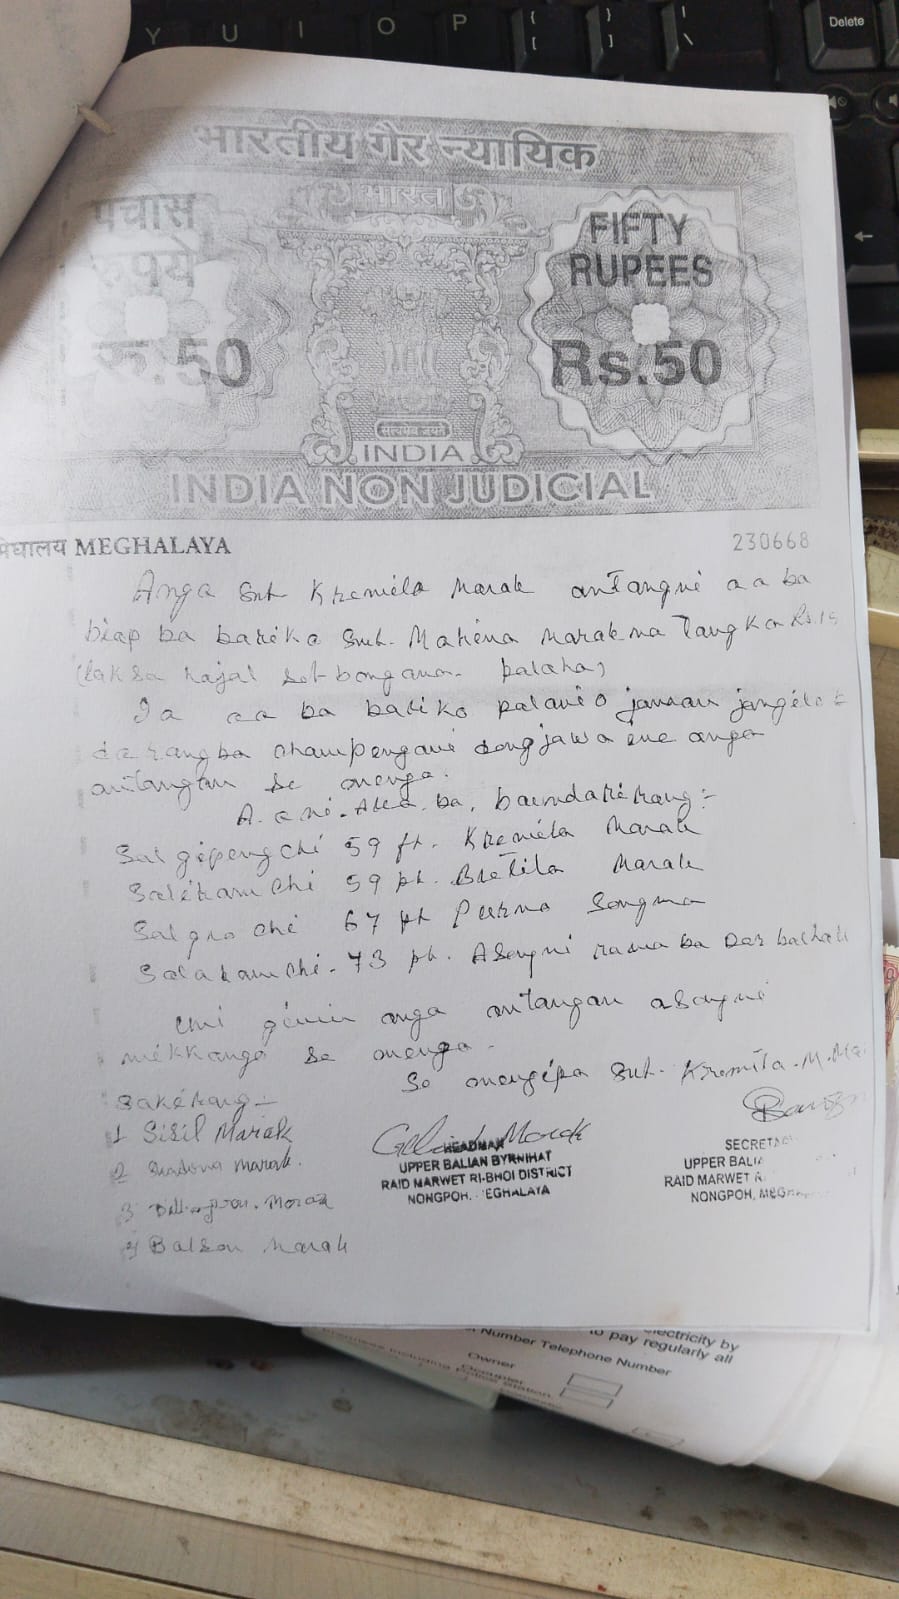 Y U I O P { [ } ] | \ Delete
भारतीय गैर न्यायिक
भारत
पचास
रुपये
रु.50
FIFTY
RUPEES
Rs.50
सत्यमेव जयते
INDIA
INDIA NON JUDICIAL
मेघालय MEGHALAYA
230668
Anga Smt Kremila Marak antangni aa ba
biap ba bariko Smt. Mahina Marak na Tangka Rs.
sot-bonganan palaha,
Ia aa ba bariko palanio jamaan
champengani dongjawa ine anga
antangan se onenga.
A.a ni ba, baundarirang:-
Salgipengchi 59 ft. Kremila Marak
Salikamchi 59 ft. Bretila Marak
Salgro chi 67 ft Purno Songma
Salakamchi-73 ft. Asongni rama ba
Uni gimin anga antangan asongni
mikkango se onenga.
Se onengipa Smt. Kremila. M.
Sakirang:-
1 Sisil Marak
2 Marak.
3 Marak
4 Balson Marak
Marak
HEADMAN
UPPER BALIAN BYRNIHAT
RAID MARWET RI-BHOI DISTRICT
NONGPOH, MEGHALAYA
SECRETA
UPPER BALIA
RAID MARWET R
NONGPOH, MEGH
electricity by
to pay regularly all
Number Telephone Number
Owner
Occupier